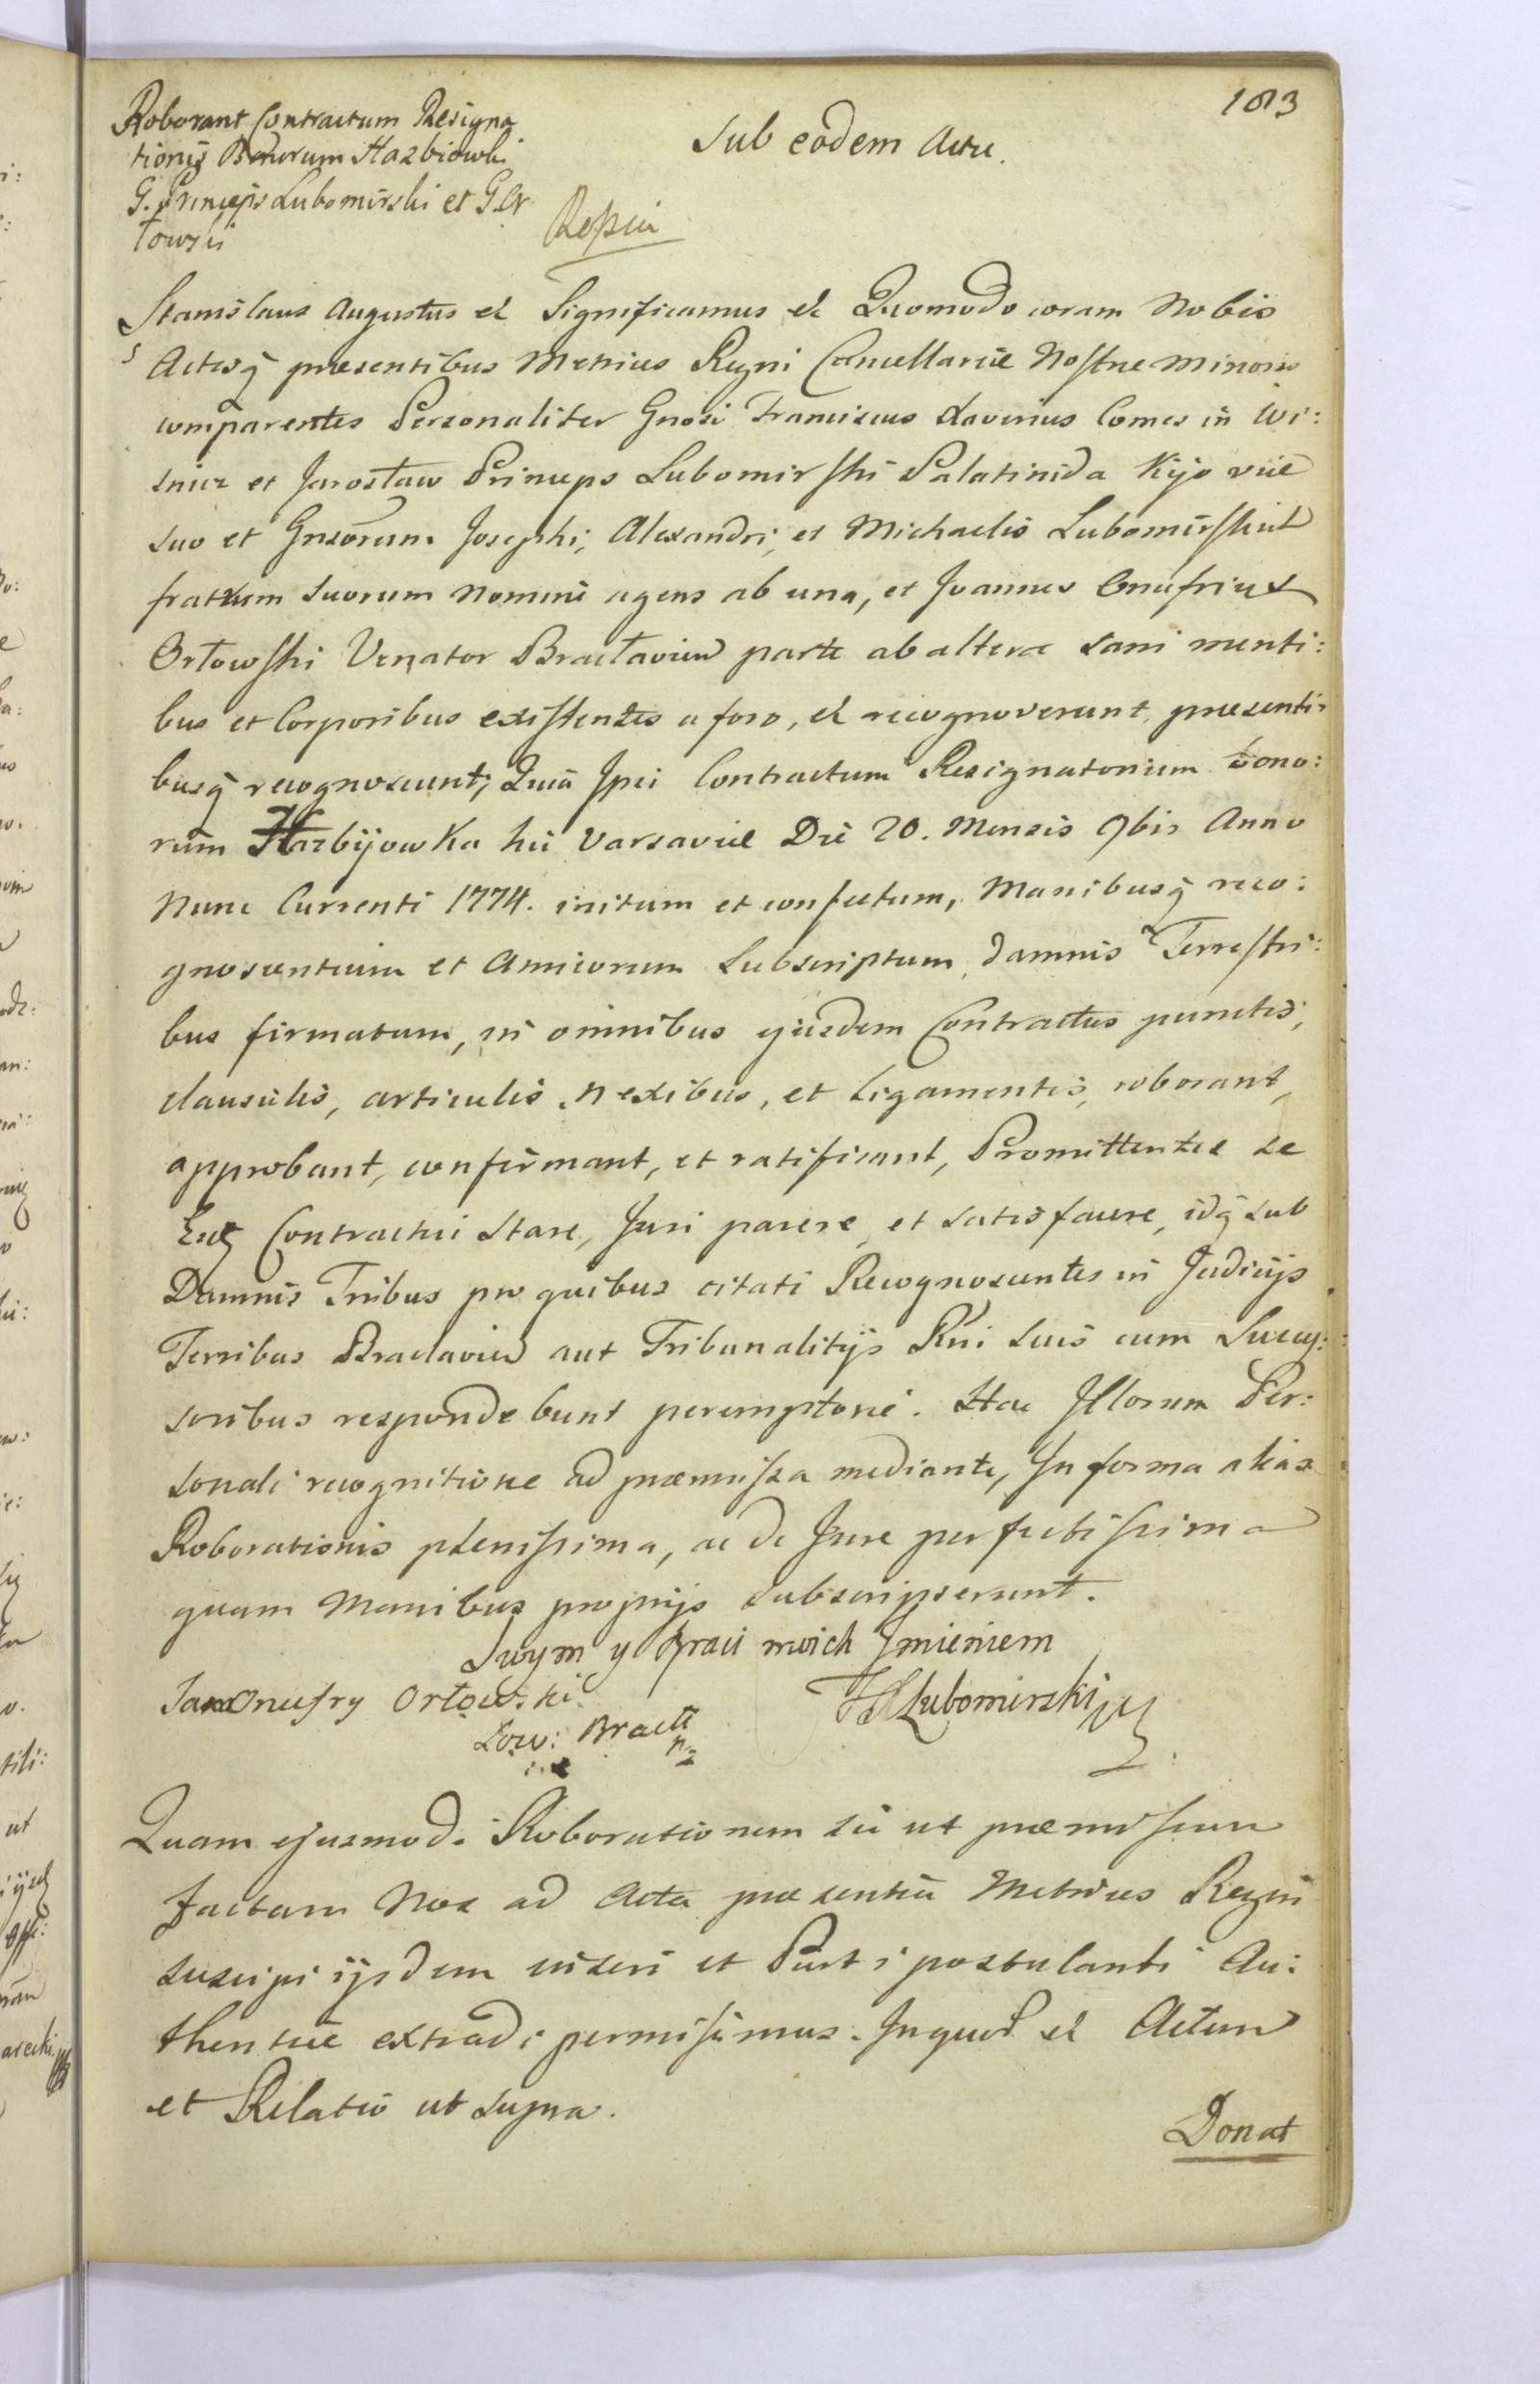 183
Roborant Contractum Resigna
tionis Bonorum Hazbiowki
G. Princeps Lubomirski et G. Or
łowski
Sub eodem Actu.
Stanislaus Augustus et Significamus et Quomodo coram Nobis
Actisq̃ præsentibus Metrices Regni Cancellariæ Nostræ Minoris
comparentes Personaliter Gnosi Franciscus Xaverius Comes in Wi:
snicz et Jarosław Princeps Lubomirski Palatinida Kijoviæ
suo et Gnsorum Josephi, Alexandri, et Michaelis Lubomirskich
fratrum suorum nomine agens ab una, et Joannes Onufrius
Orłowski Venator Bracłavien parte ab altera sani menti:
bus et Corporibus existentes a foro, et recognoverunt, præsenti:
busq̃ recognoscunt; Quia Ipsi Contractum Resignatorium bono:
rum Hazbijowka hic Varsaviæ Die 20. Mensis 9bis Anno
Nunc Currenti 1774. initum et confectum, Manibusq̃ reco:
gnoscentium et Amicorum Subscriptum, damnis Terrestri:
bus firmatum, in omnibus ejusdem Contractus punctis,
clausulis, articulis nexibus, et Ligamentis, roborant,
approbant, confirmant, et ratificant, Promittentes se
Contractui Stare, Juri parere, et satisfacere, idq̃ sub
Damnis Tribus pro quibus citati Recognoscentes in Judicijs
Terribus Braclavien aut Tribunalitijs Rni suis cum Succes:
soribus respondebunt peremptorie. Hac Illorum Per:
sonali recognitione ad præmissa mediante, In forma alias
Roborationis plenissima, ac de Jure perfectissima
quam Manibus proprijs subscripserunt.
Swym y Braci moich Imieniem
Jan Onufry Orłowski
Łow: Bracł
Lubomirski
Quam ejusmodi Roborationem sic ut præmissum
factam Nos ad Acta præsentia Metrices Regni
suscipi ijsdem inseri et Parti postulanti Au:
thentice extradi permisimus. In quor. et Actum
et Relatio ut supra.
Donat